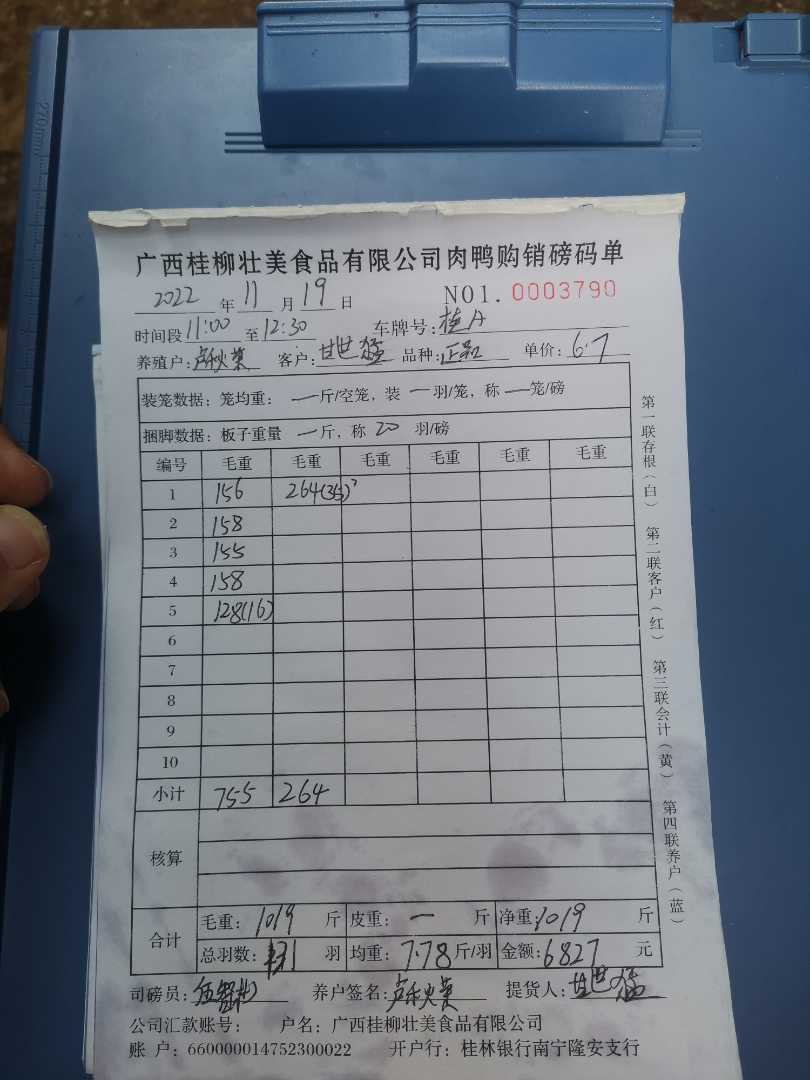 广西桂柳壮美食品有限公司肉鸭购销磅码单
2022 年 11 月 19 日 NO1. 0003790
时间段 11:00 至 12:30 车牌号: 桂A
养殖户: 卢秋菜 客户: 甘世猛 品种: 正品 单价: 6.7
装笼数据: 笼均重: 一斤/空笼, 装 一羽/笼, 称 一笼/磅
捆脚数据: 板子重量 一斤, 称 20 羽/磅
编号 毛重 毛重 毛重 毛重 毛重 毛重
1 156 264(35)
2 158
3 155
4 158
5 128(16)
6
7
8
9
10
小计 755 264
核算
合计 毛重: 1019 斤 皮重: 一 斤 净重: 1019 斤
总羽数: 131 羽 均重: 7.78 斤/羽 金额: 6827 元
司磅员: 养户签名: 卢秋菜 提货人: 甘世猛
公司汇款账号: 户名: 广西桂柳壮美食品有限公司
账 户: 660000014752300022 开户行: 桂林银行南宁隆安支行
第一联存根(白) 第二联客户(红) 第三联会计(黄) 第四联养户(蓝)
270mm